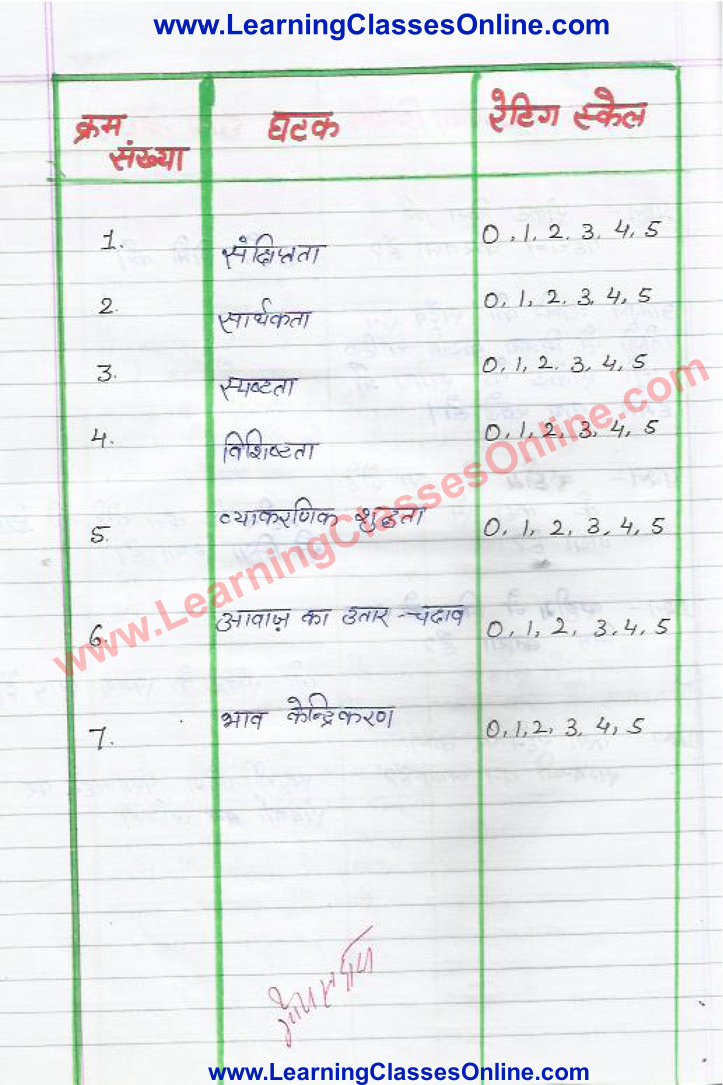 www.LearningClassesOnline.com
क्रम संख्या घटक रेटिंग स्केल
1. संक्षिप्तता 0,1,2,3,4,5
2. सार्थकता 0,1,2,3,4,5
3. स्पष्टता 0,1,2.3,4,5
4. विशिष्टता 0,1,2,3,4,5
5. व्याकरणिक शुद्धता 0,1,2,3,4,5
6. आवाज़ का उतार-चढाव 0,1,2,3.4,5
7. भाव केन्द्रिकरण 0,1,2,3,4,5
www.LearningClassesOnline.com
www.LearningClassesOnline.com